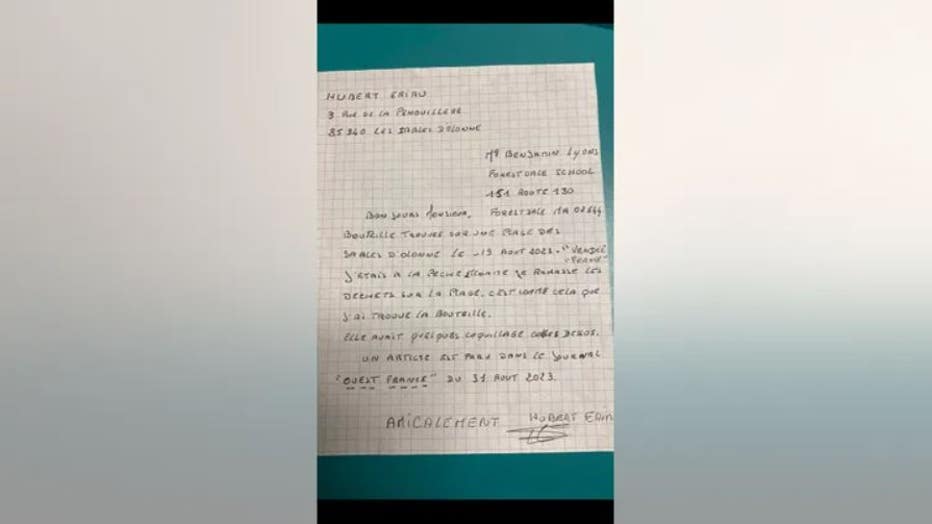 HUBERT ERIAU
3 RUE DE LA PENOUILLERE
85340 LES SABLES D'OLONNE
Mr BENJAMIN LYONS
FORESTDALE SCHOOL
151 ROUTE 130
BONJOURS MONSIEUR, FORESTDALE MA 02644
BOUTEILLE TROUVE SUR UNE PLAGE DES
SABLES D'OLONNE LE 19 AOUT 2023. "VENDEE
FRANCE"
J'ETAIS A LA PECHE JE RAMASSE LES
DECHETS SUR LA PLAGE. C'EST COMME CELA QUE
J'AI TROUVE LA BOUTEILLE.
ELLE AVAIT QUELQUES COQUILLAGE COLLES DESSUS.
UN ARTICLE EST PARU DANS LE JOURNAL
"OUEST FRANCE" DU 31 AOUT 2023.
AMICALEMENT HUBERT ERIAU